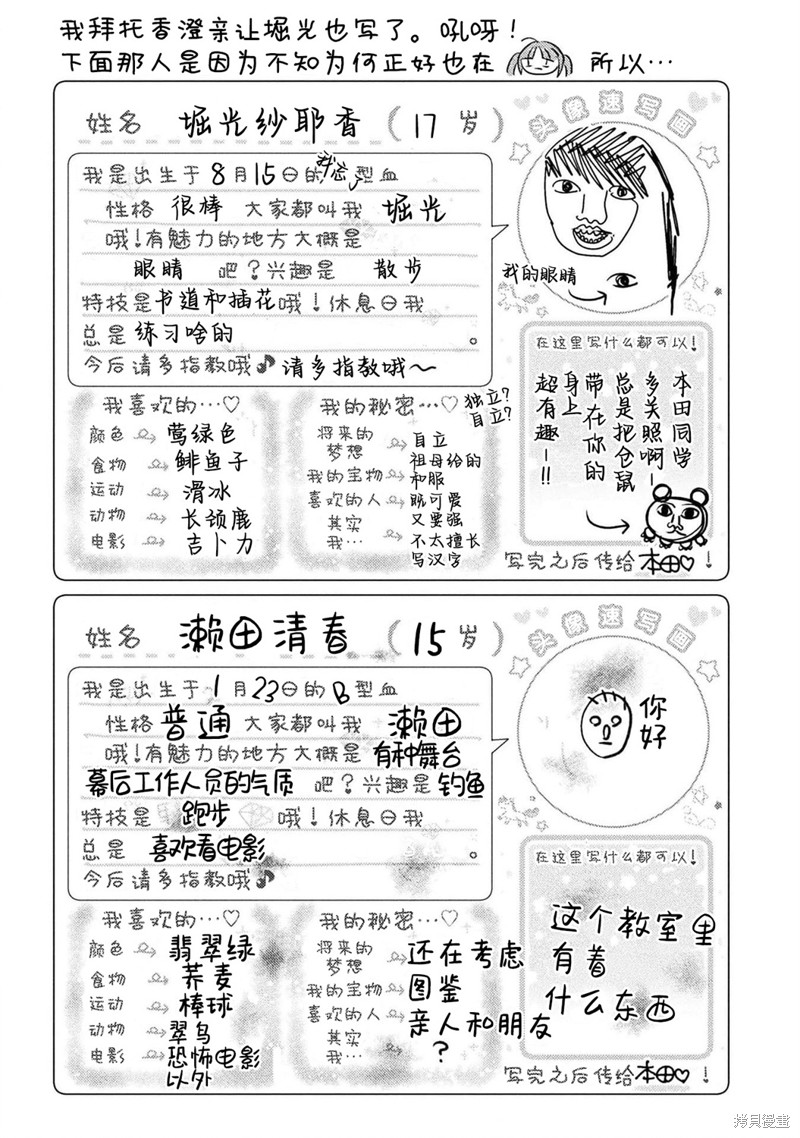 我拜托香澄亲让堀光也写了。吼呀！
下面那人是因为不知为何正好也在 所以…
姓名 堀光纱耶香（17岁）
我是出生于8月15日的我忘了型血
性格 很棒 大家都叫我 堀光
哦！有魅力的地方大概是
眼睛 吧？兴趣是 散步
特技是书道和插花哦！休息日我
总是练习啥的。
今后请多指教哦♪ 清多指教哦～
头像速写画
我的眼睛
在这里写什么都可以！
本田同学
多关照啊–
总是把仓鼠
带在你的
身上
超有趣–!!
我喜欢的…♡
颜色 莺绿色
食物 鲱鱼子
运动 滑冰
动物 长颈鹿
电影 吉卜力
我的秘密…♡
独立？
自立？
将来的梦想 自立
我的宝物 祖母给的和服
喜欢的人 既可爱又要强
其实我… 不太擅长写汉字
写完之后传给本田♡！
姓名 濑田清春（15岁）
我是出生于1月23日的B型血
性格 普通 大家都叫我 濑田
哦！有魅力的地方大概是 有种舞台
幕后工作人员的气质 吧？兴趣是 钓鱼
特技是 跑步 哦！休息日我
总是 喜欢看电影。
今后请多指教哦♪
头像速写画
你好
在这里写什么都可以！
这个教室里
有着
什么东西
我喜欢的…♡
颜色 翡翠绿
食物 荞麦
运动 棒球
动物 翠鸟
电影 恐怖电影以外
我的秘密…♡
将来的梦想 还在考虑
我的宝物 图鉴
喜欢的人 亲人和朋友
其实我… ？
写完之后传给本田♡！
拷貝漫畫